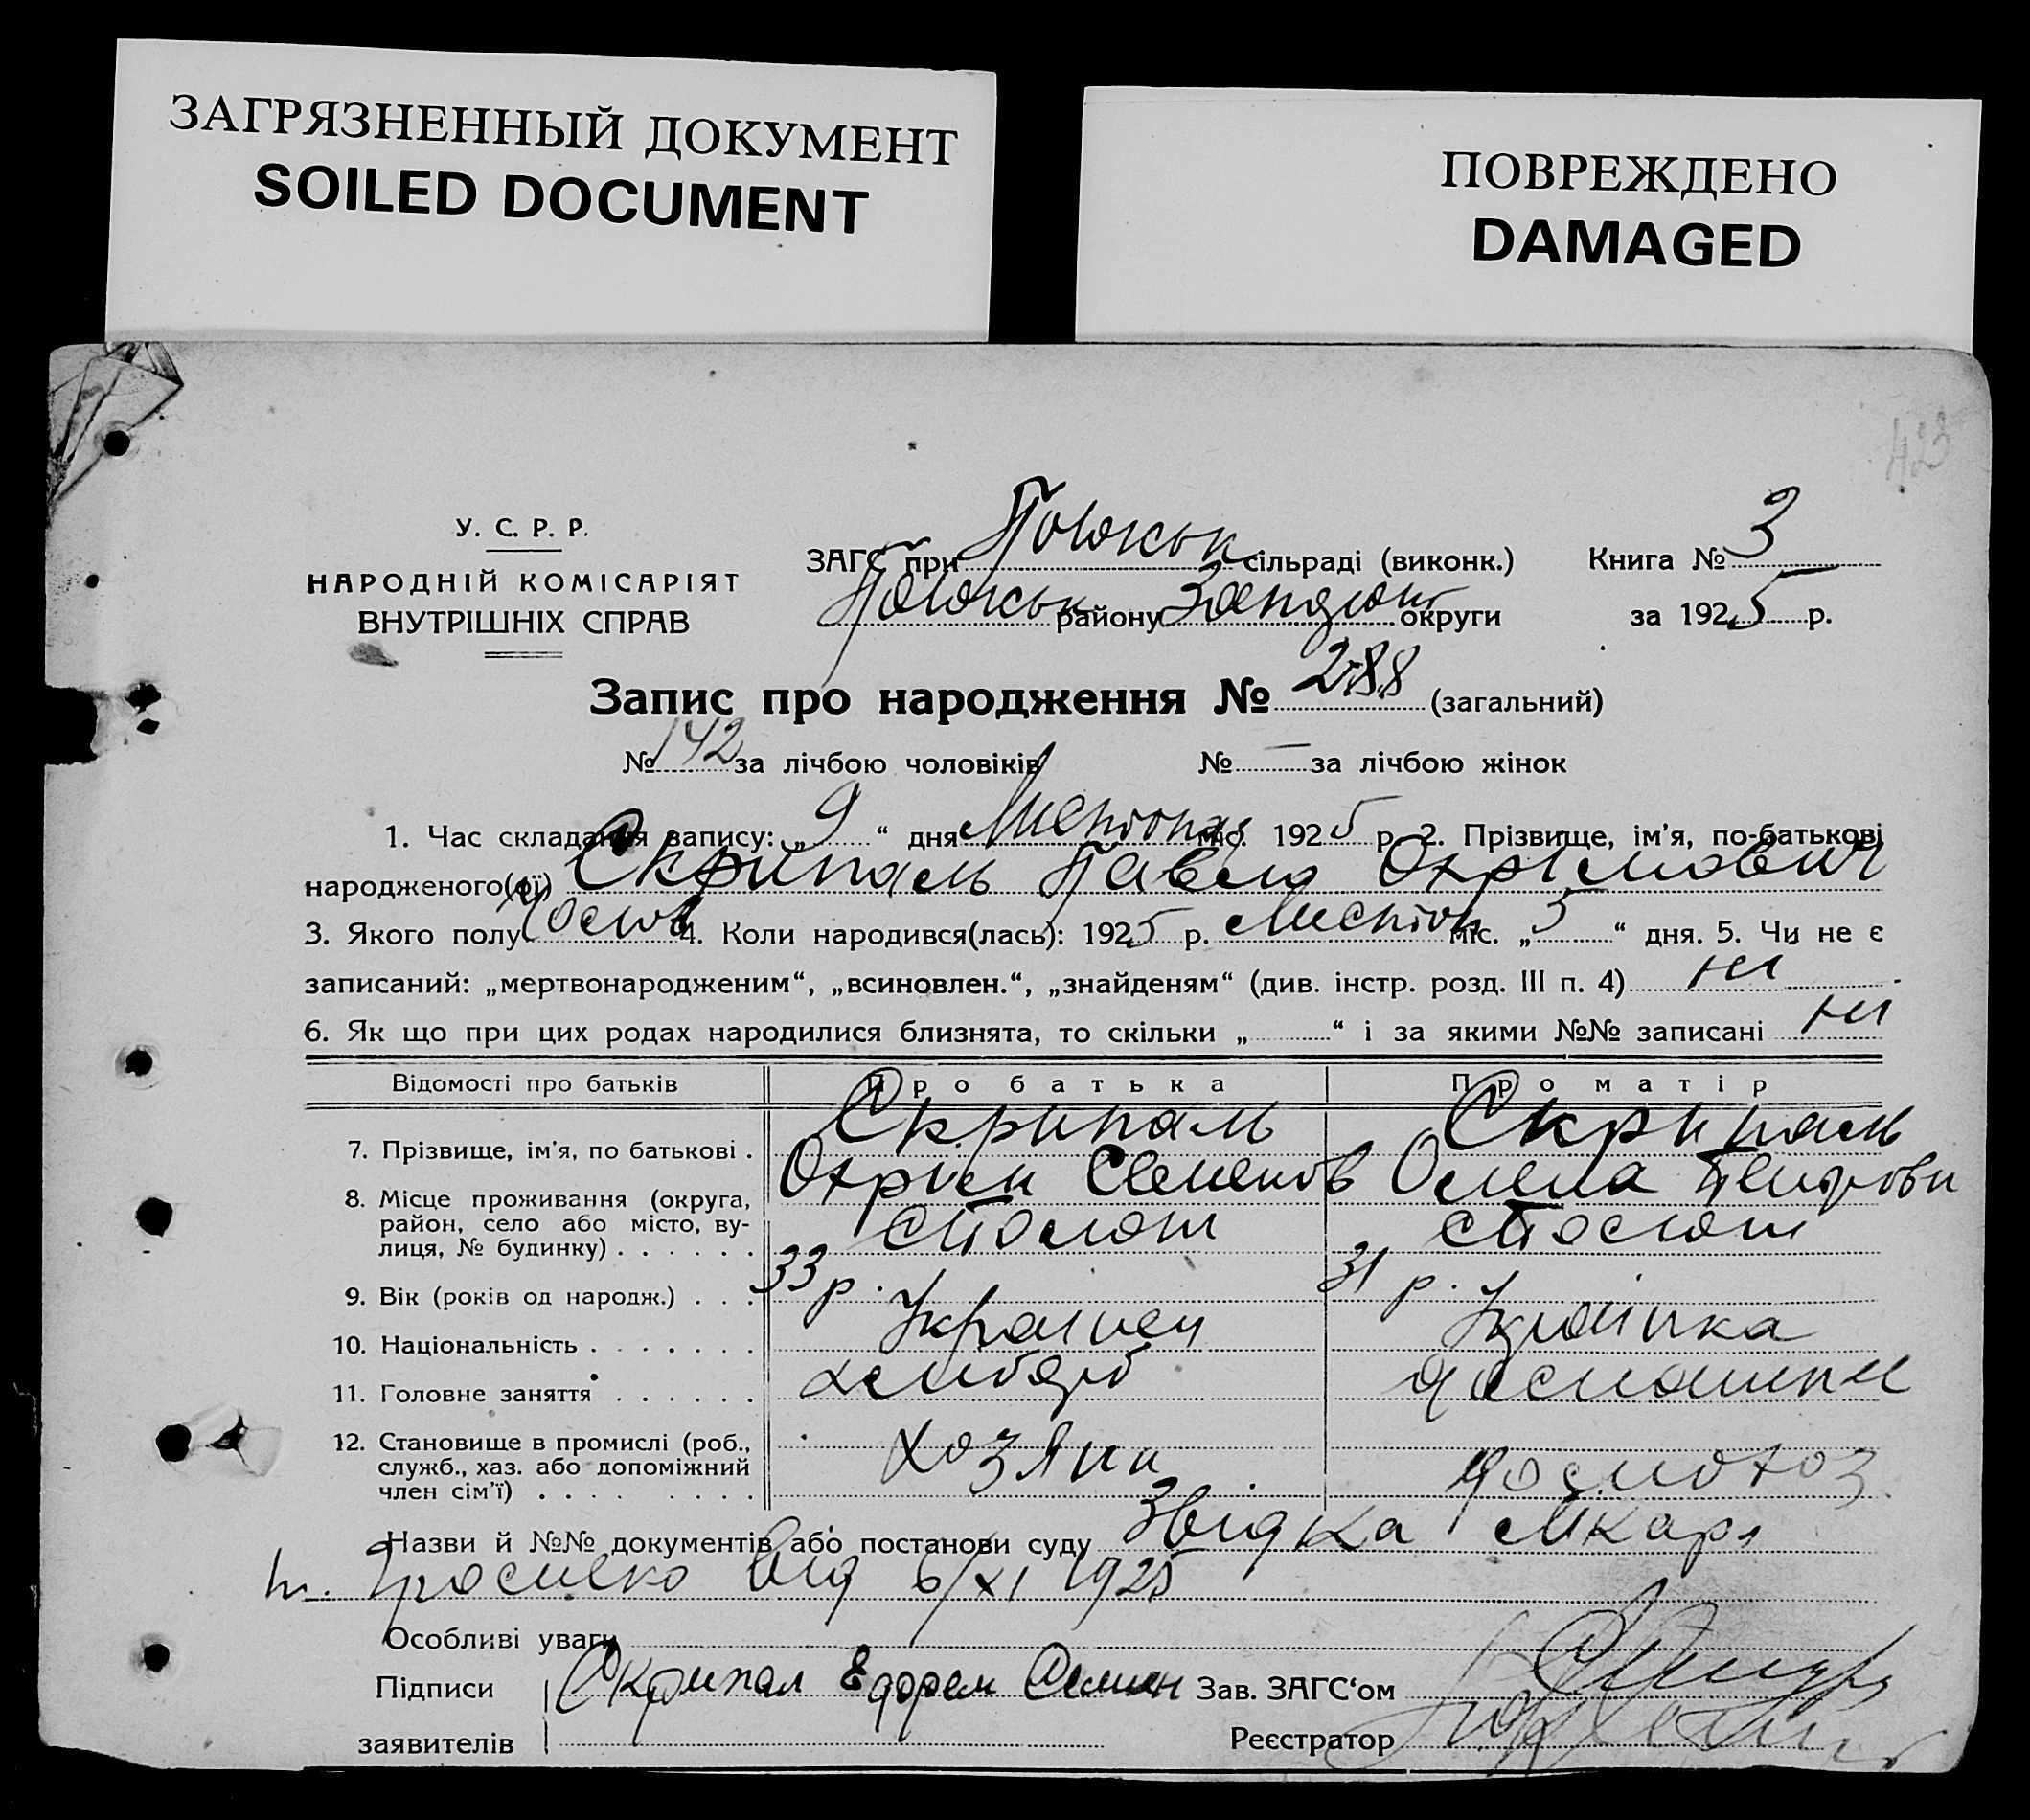 ЗАГРЯЗНЕННЫЙ ДОКУМЕНТ
SOILED DOCUMENT
ПОВРЕЖДЕНО
DAMAGED
423
У. С. Р. Р.
НАРОДНІЙ КОМІСАРІЯТ
ВНУТРІШНІХ СПРАВ
ЗАГС при сільраді (виконк.) Книга № 3
району округи за 1925 р.
Запис про народження № 288 (загальний)
№ 142 за лічбою чоловіків № — за лічбою жінок
1. Час складання запису: „ 9 “ дня Листопад міс. 1925 р. 2. Прізвище, ім'я, по-батькові
народженого(ої) Скрипаль Павло Охрімович
3. Якого полу 4. Коли народився(лась): 1925 р. Листоп міс. „ 5 “ дня. 5. Чи не є
записаний: „мертвонародженим“, „всиновлен.“, „знайденям“ (див. інстр. розд. III п. 4) ні
6. Як що при цих родах народилися близнята, то скільки „ “ і за якими №№ записані ні
Відомості про батьків Про батька Про матір
7. Прізвище, ім'я, по батькові . Скрипаль Скрипаль
Охрим Семенов
8. Місце проживання (округа,
район, село або місто, ву-
лиця, № будинку) . . . . . .
9. Вік (років од народж.) . . . 33 р. 31 р.
10. Національність . . . . . . . Українец Українка
11. Головне заняття . . . . . . хлибороб
12. Становище в промислі (роб.,
служб., хаз. або допоміжний
член сім'ї) . . . . . . . . хозяин домохоз
Назви й №№ документів або постанови суду Звідка
від 6/XI 1925
Особливі уваги
Підписи Скрипал Ефрем Семен Зав. ЗАГС‘ом
заявителів Реєстратор